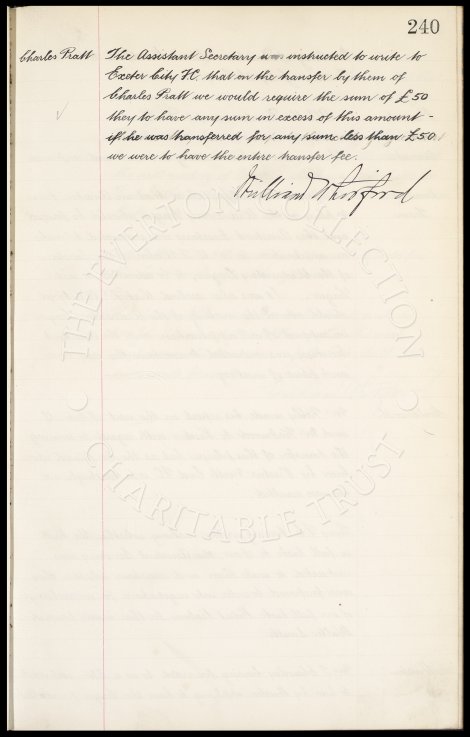 240
Charles Pratt The Assistant Secretary was instructed to write to
Exeter City FC. that on the transfer by them of
Charles Pratt we would require the sum of £50
they to have any sum in excess of this amount -
if he was transferred for any sum less than £50
we were to have the entire transfer fee.
THE EVERTON COLLECTION
CHARITABLE TRUST